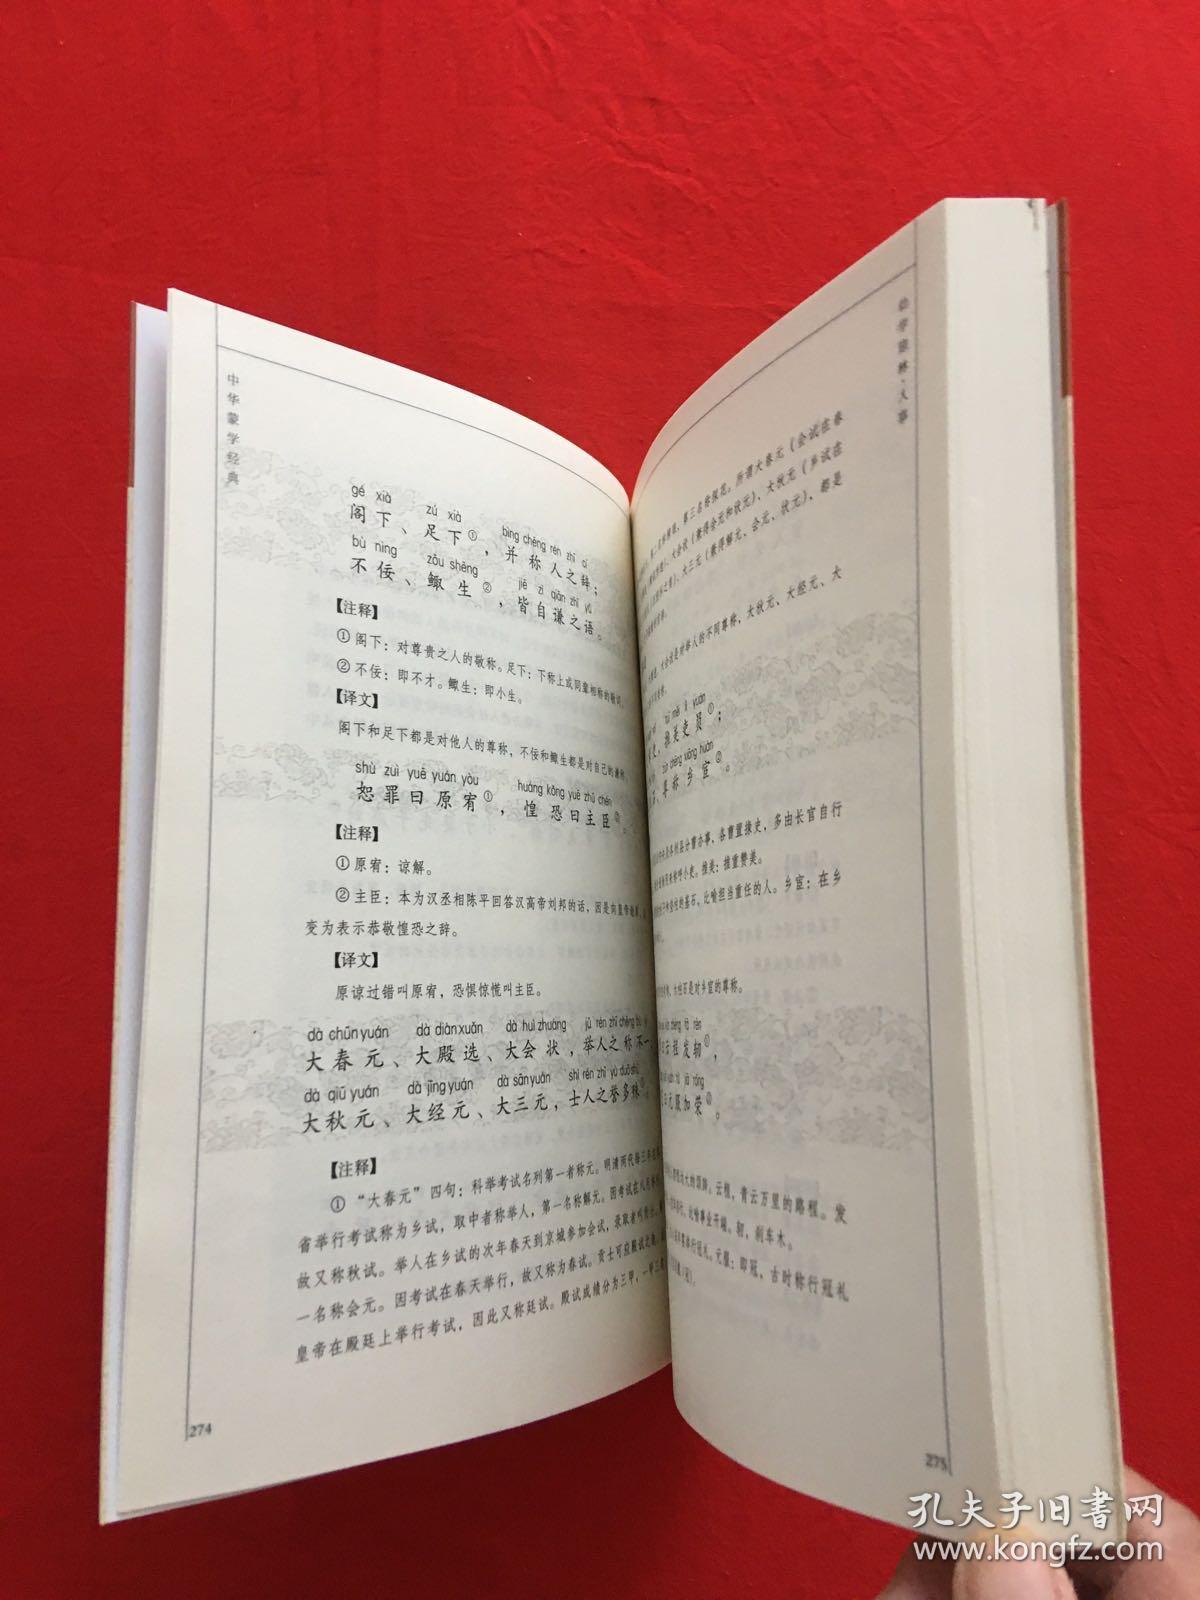 中华蒙学经典
gé xià zú xià bìng chēng rén zhī cí
阁下、足下①，并称人之辞；
bù nìng zōu shēng jiē zì qiān zhī yǔ
不佞、鲰生②，皆自谦之语。
【注释】
①阁下：对尊贵之人的敬称。足下：下称上或同辈相称的敬词。
②不佞：即不才。鲰生：即小生。
【译文】
阁下和足下都是对他人的尊称，不佞和鲰生都是对自己的谦称。
shù zuì yuē yuán yòu huáng kǒng yuē zhǔ chén
恕罪曰原宥①，惶恐曰主臣②。
【注释】
①原宥：谅解。
②主臣：本为汉丞相陈平回答汉高帝刘邦的话，因是向皇帝
变为表示恭敬惶恐之辞。
【译文】
原谅过错叫原宥，恐惧惊慌叫主臣。
dà chūn yuán dà diàn xuǎn dà huì zhuàng jǔ rén zhī chēng bù
大春元、大殿选、大会状，举人之称不一；
dà qiū yuán dà jīng yuán dà sān yuán shì rén zhī yù duō shū
大秋元、大经元、大三元，士人之誉多殊
【注释】
①“大春元”四句：科举考试名列第一者称元。明清两代每三年在
省举行考试称为乡试，取中者称举人，第一名称解元。因考试在八月
故又称秋试。举人在乡试的次年春天到京城参加会试，录取者叫贡士，
一名称会元。因考试在春天举行，故又称为春试。贡士可应殿试
皇帝在殿廷上举行考试，因此又称廷试。殿试成绩分为三甲，一甲三
274
幼学琼林·人事
第三名称探花。所谓大春元（会试在春
大会状（兼得会元和状元）、大秋元（乡试在
大三元（兼得解元、会元、状元）、都是
是对举人的不同尊称，大秋元、大经元、大
tuī měi lì yuán
推美吏员①；
zūn chēng xiāng huàn
尊称乡宦②。
分曹办事，各曹置掾史，多由长官自行
称呼小吏。推美：推重赞美。
的基石，比喻担当重任的人。乡宦：在乡
大柱石是对乡宦的尊称。
云程发轫①，
元服加荣②。
云程，青云万里的路程。发
比喻事业开端。轫，刹车木。
举行冠礼。元服：即冠，古时称行冠礼
275
孔夫子旧书网
www.kongfz.com